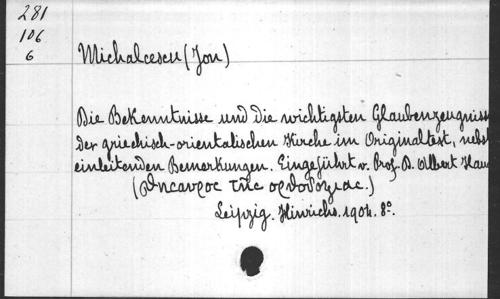 281
106
6
Michalcescu (Jon)
Die Bekenntnisse und die wichtigsten Glaubenszeugniss
der griechisch-orientalischen Kirche im Originaltext, nebst
einleitenden Bemerkungen. Eingeführt v. Prof. D. Albert Hau
(Θησαυρος της ορθοδοξιας.)
Leipzig. Hinrichs. 1904. 8°.